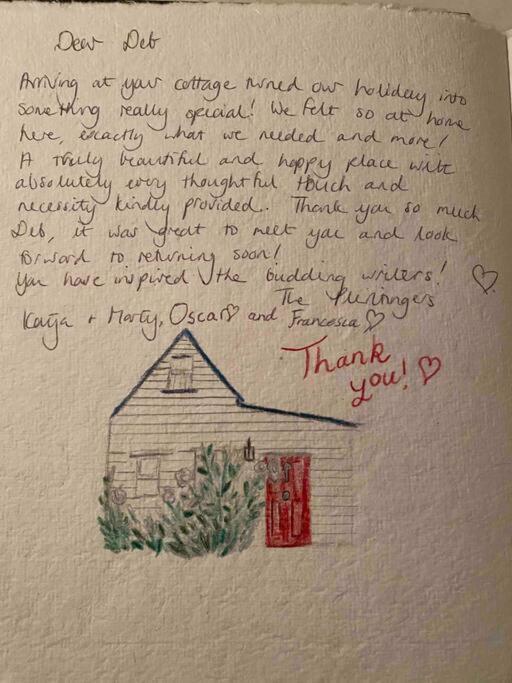 Dear Deb
Arriving at your cottage turned our holiday into
something really special! We felt so at home
here, exactly what we needed and more!
A truly beautiful and happy place with
absolutely every thoughtful touch and
necessity kindly provided. Thank you so much
Deb, it was great to meet you and look
forward to returning soon!
You have inspired the budding writers! ♡
The
Katja + Marty, Oscar♡ and Francesca♡
Thank
you! ♡